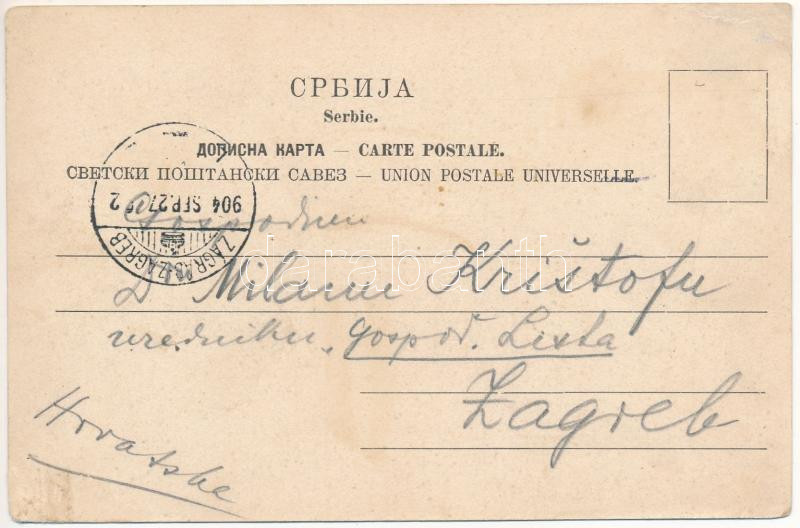 СРБИЈА
Serbie.
ДОПИСНА КАРТА — CARTE POSTALE.
СВЕТСКИ ПОШТАНСКИ САВЕЗ — UNION POSTALE UNIVERSELLE.
904 SEP. 27
ZAGRAB ZAGREB
Gospodinu
Dr Milanu Krištofu
uredniku „Gospod. Lista
Zagreb
Hrvatska
darabanth